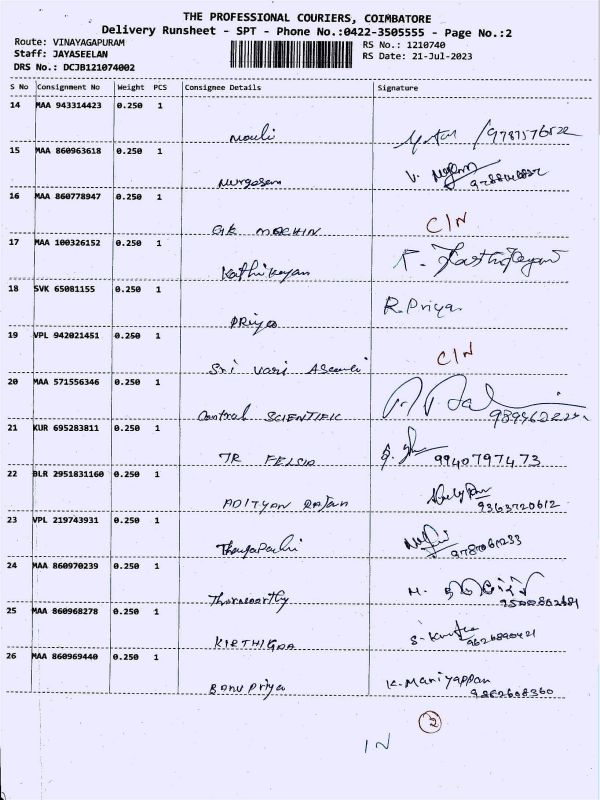 THE PROFESSIONAL COURIERS, COIMBATORE
Delivery Runsheet - SPT - Phone No.:0422-3505555 - Page No.:2
Route: VINAYAGAPURAM RS No.: 1210740
Staff: JAYASEELAN RS Date: 21-Jul-2023
DRS No.: DCJB121074002
S No Consignment No Weight PCS Consignee Details Signature
14 MAA 943314423 0.250 1
Mouli
15 MAA 860963618 0.250 1
Murgesan
16 MAA 860778947 0.250 1
GK MACHIN C/N
17 MAA 100326152 0.250 1
Kathikeyan
18 SVK 65081155 0.250 1
PRiya R.Priya
19 VPL 942021451 0.250 1
Sri Vari C/N
20 MAA 571556346 0.250 1
Central SCIENTIFIC
21 KUR 695283811 0.250 1
TR FELSIO 9940797473
22 BLR 2951831160 0.250 1
ADITYAN RAJAN 9363720612
23 VPL 219743931 0.250 1
24 MAA 860970239 0.250 1
M.
25 MAA 860968278 0.250 1
KIRTHIGAA
26 MAA 860969440 0.250 1
Banu Priya K. Maniyappan
2
IN